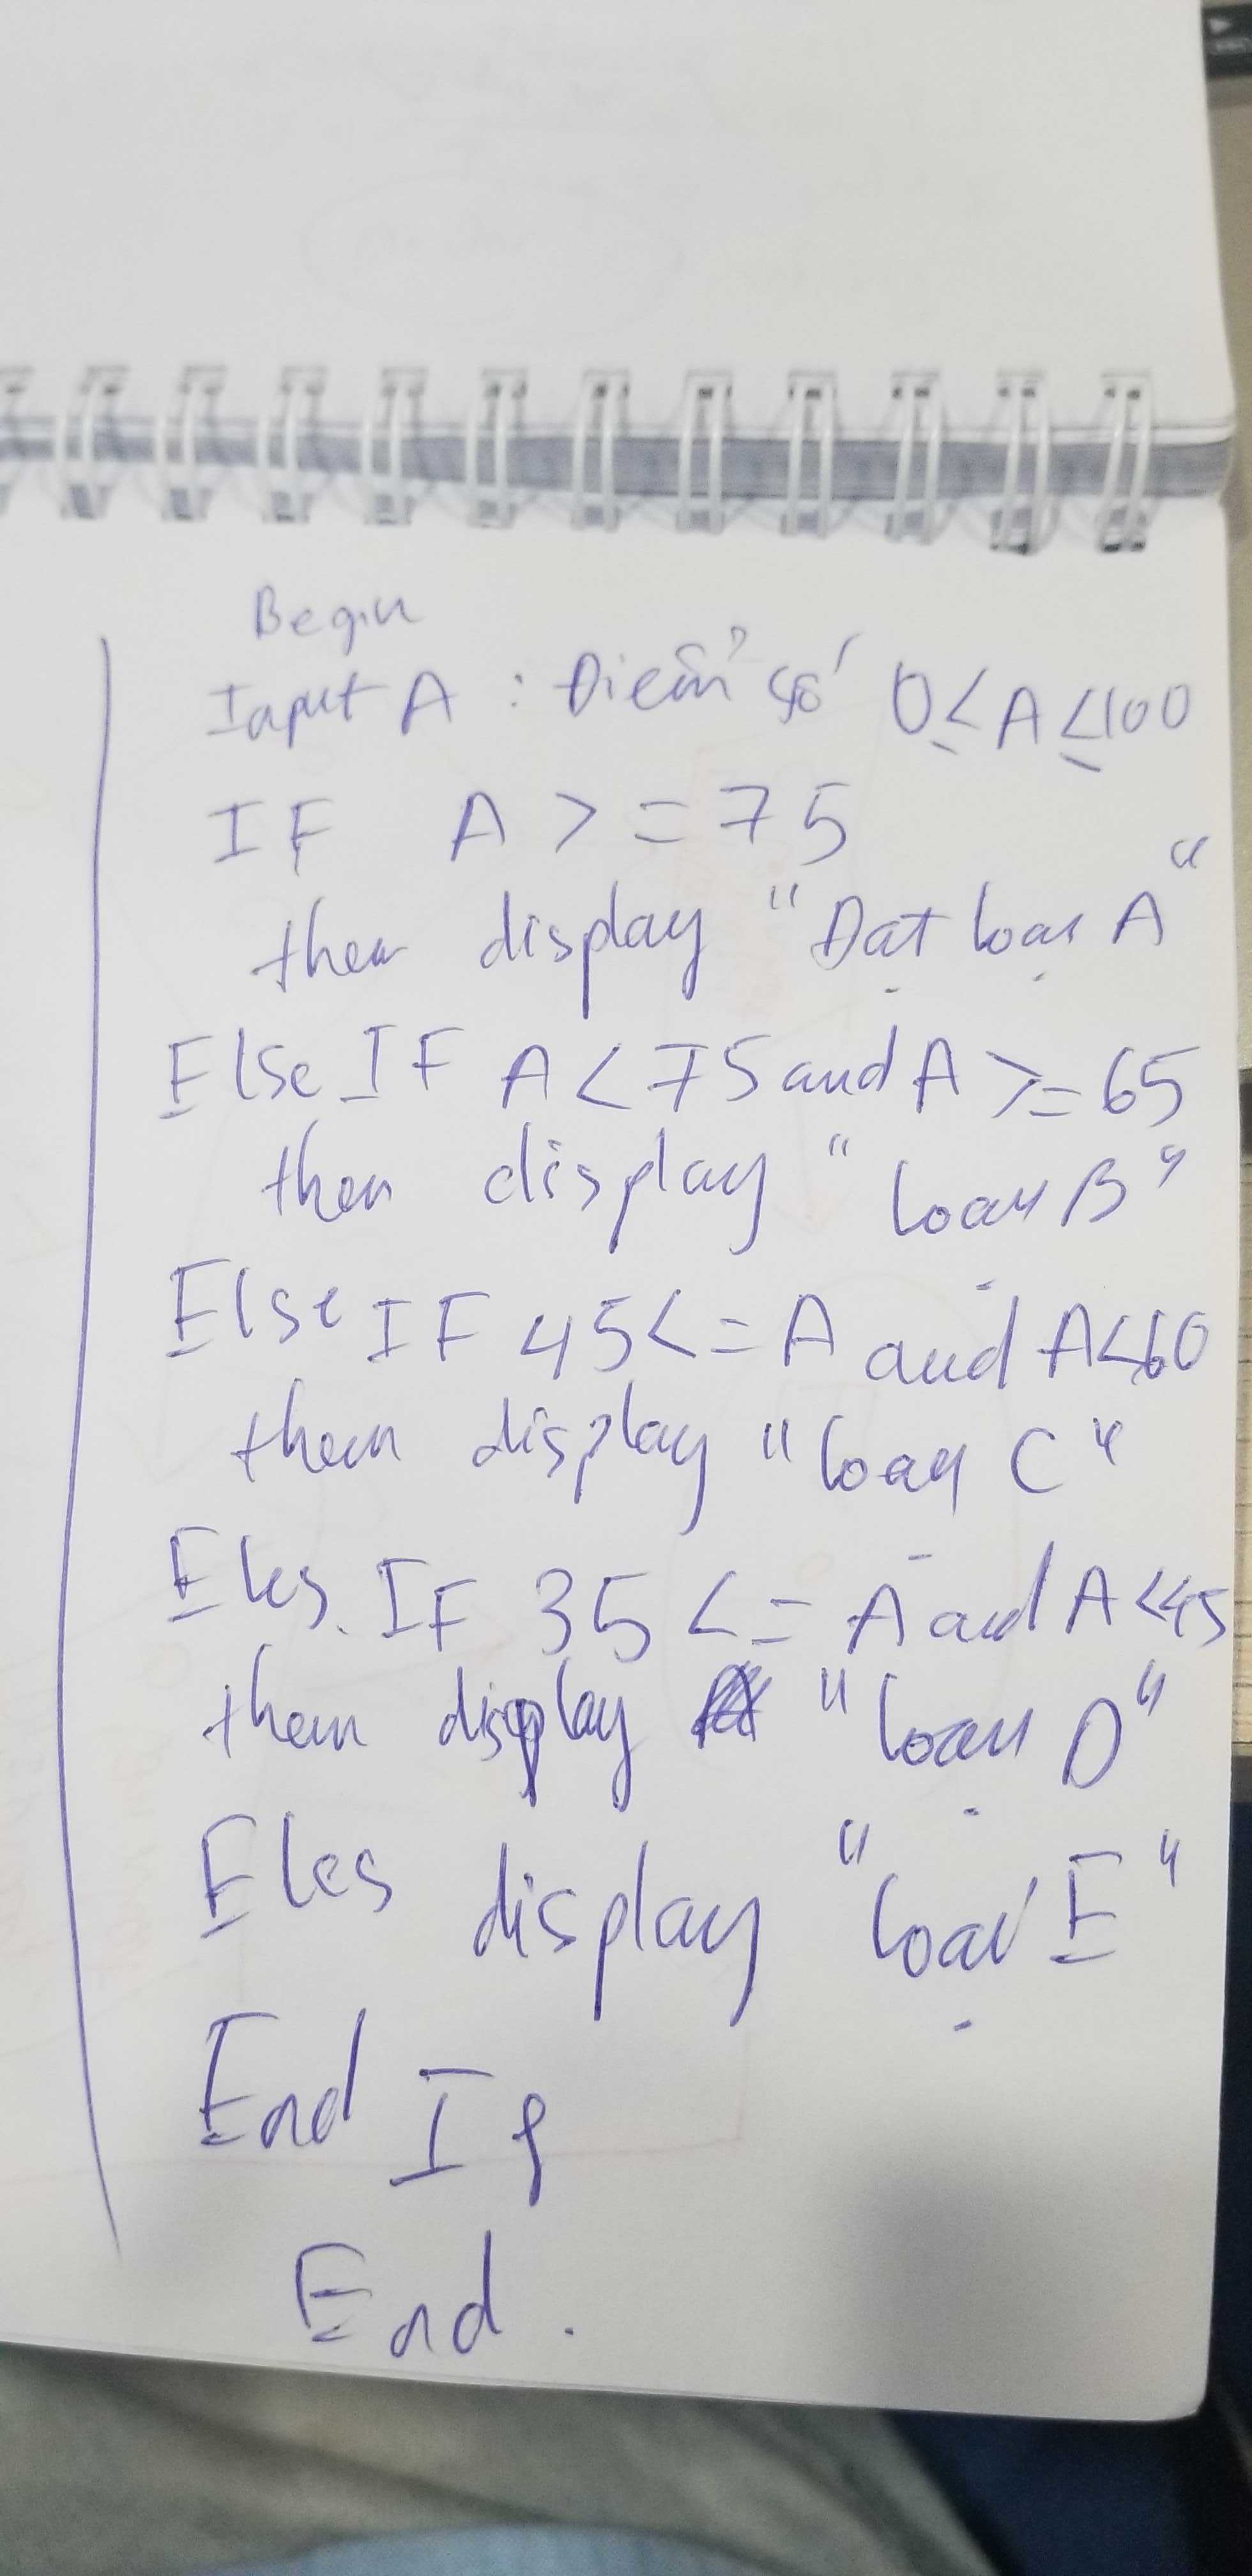 Begin
Input A : Điểm số 0 ≤ A ≤ 100
IF A >= 75
then display "Đạt loại A"
Else IF A < 75 and A >= 65
then display "loại B"
Else IF 45 <= A and A < 60
then display "loại C"
Eles IF 35 <= A and A < 45
then display "loại D"
Eles display "loại E"
End If
End.